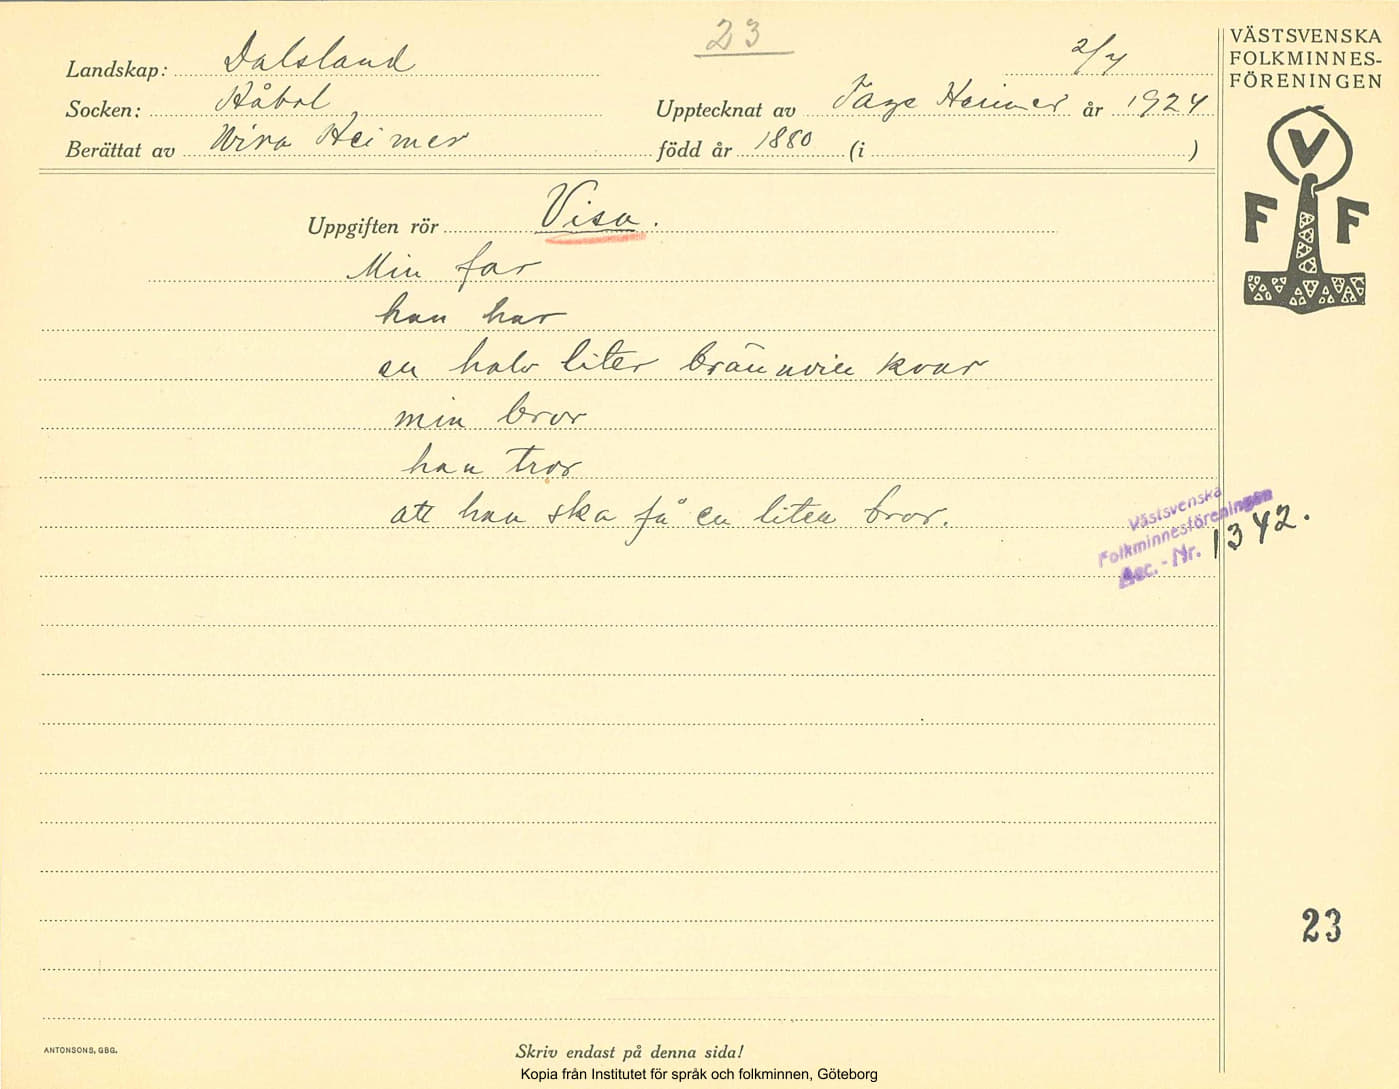 23
Landskap: Dalsland
2/4
VÄSTSVENSKA
FOLKMINNES-
FÖRENINGEN
Socken: Håbol
Upptecknat av Tage Heimer år 1924
Berättat av Wira Heimer
född år 1880 (i )
V
F F
Uppgiften rör Visa.
Min far
han har
en halv liter brännvin kvar
min bror
han tror
att han ska få en liten bror.
Västsvenska
Folkminnesföreningen
Acc.-Nr. 1342.
23
ANTONSONS, GBG.
Skriv endast på denna sida!
Kopia från Institutet för språk och folkminnen, Göteborg